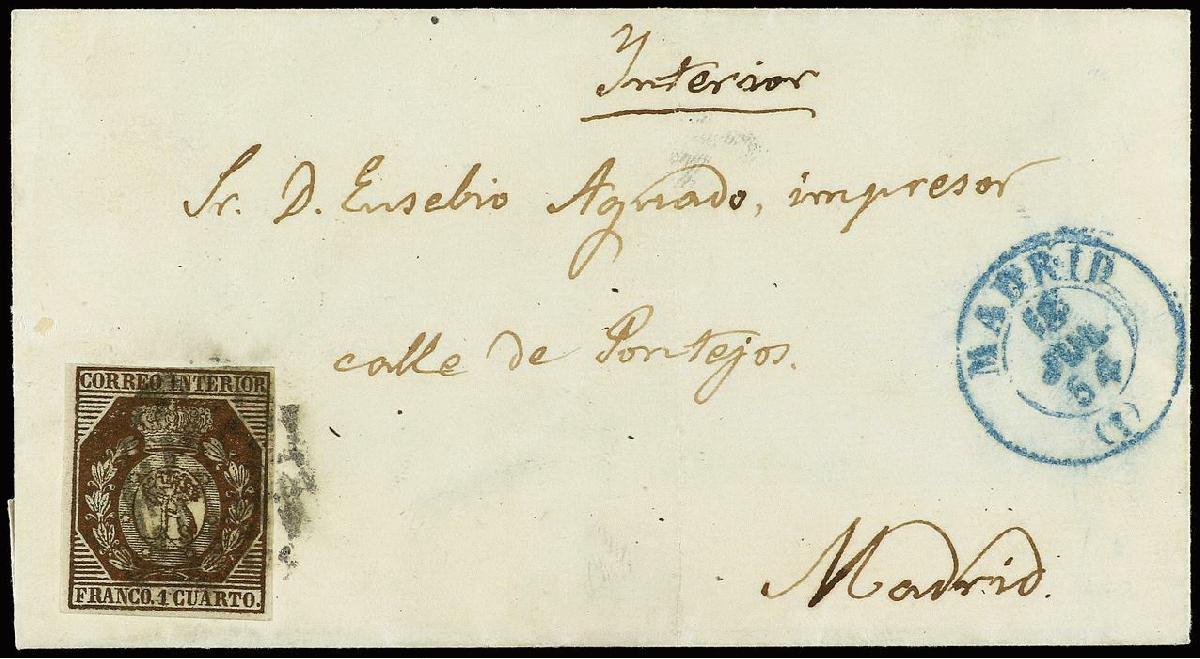 Interior
Sr. D. Eusebio Aguado, impresor
calle de Pontejos.
Madrid.
MADRID
JUN
54
(1)
CORREO INTERIOR
FRANCO. 1 CUARTO.